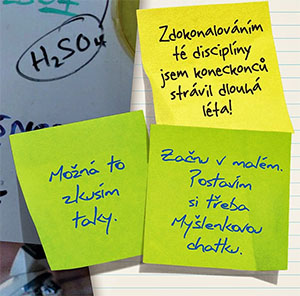 H₂SO₄
Zdokonalováním
té disciplíny
jsem koneckonců
strávil dlouhá
léta!
Možná to
zkusím
taky.
Začnu v malém.
Postavím
si třeba
Myšlenkovou
chatku.